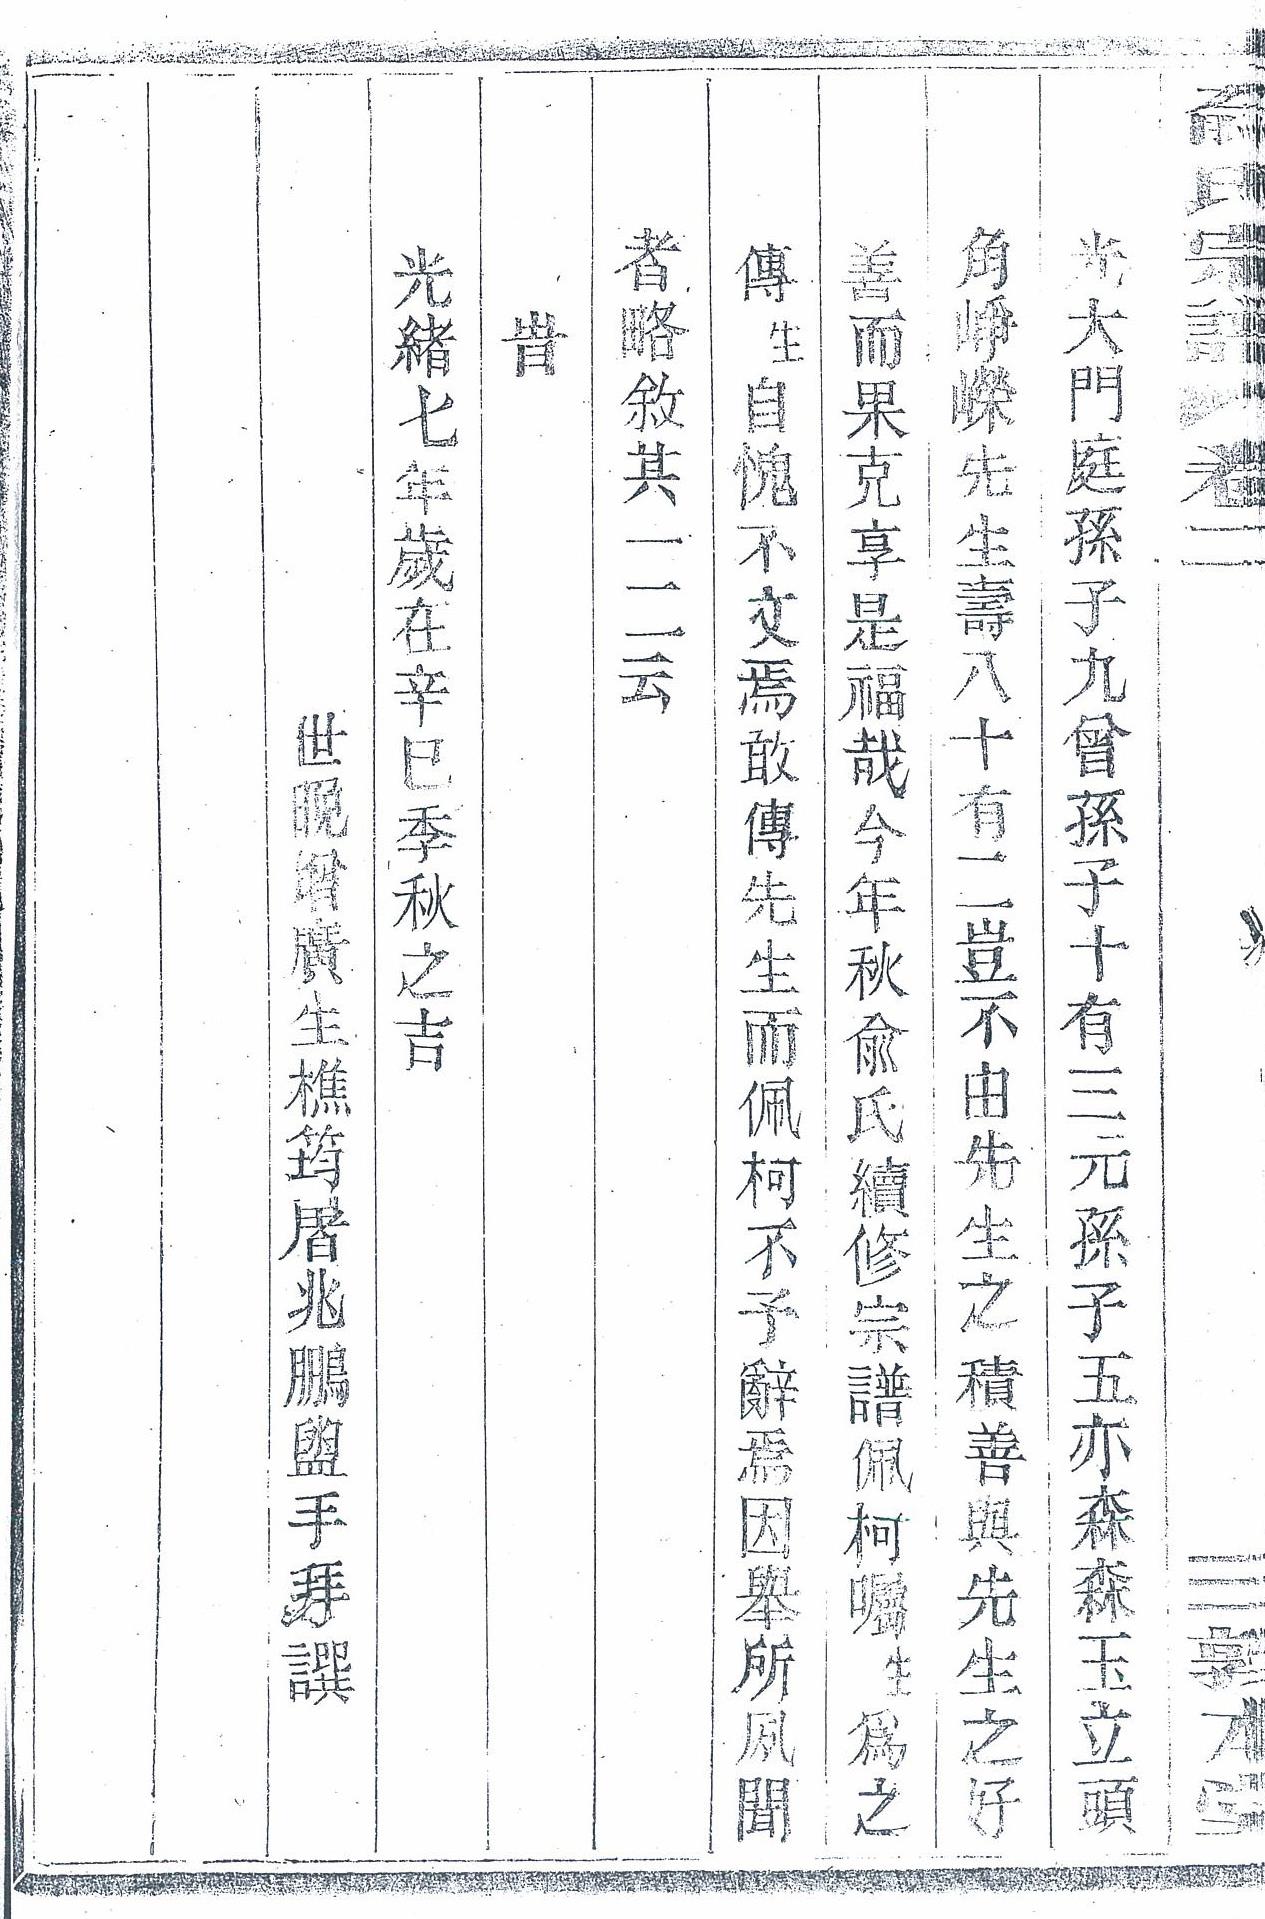 光大門庭孫子九曾孫子十有三元孫子五亦森森玉立頭
角崢嶸先生壽八十有二豈不由先生之積善與先生之好
善而果克享是福哉今年秋俞氏續修宗譜佩柯囑生為之
傳生自愧不文焉敢傳先生而佩柯不予辭焉因舉所夙聞
者略敘其一二云
旹
光緒七年歲在辛巳季秋之吉
世晚增廣生樵筠屠兆鵬盥手拜譔